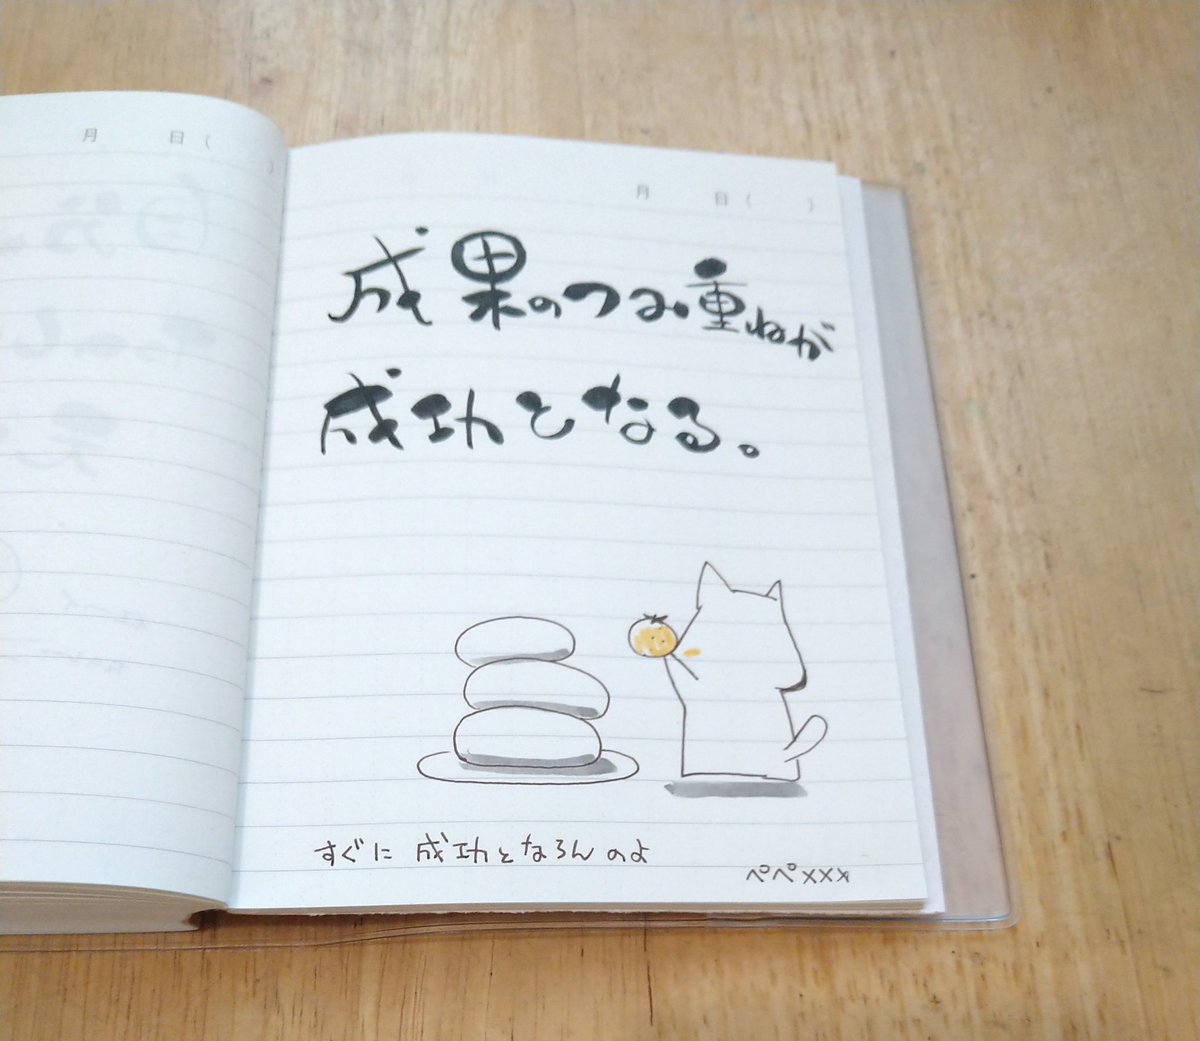 月 日( )
月 日( )
成果のつみ重ねが
成功となる。
すぐに 成功となろんのよ
ペペxxx